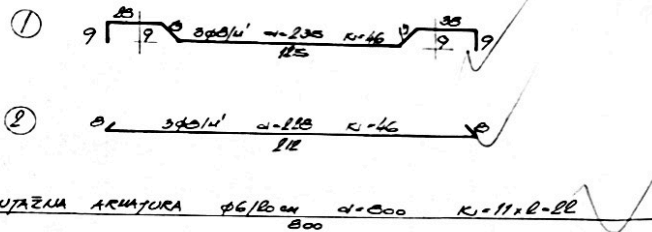 ① 9 9 8 3ϕ8/m' d=235 K=46 38 9 9
125
② 8 3ϕ8/m' d=228 K=46 8
212
UTAŽNA ARMATURA ϕ6/20 cm d=800 K=11x2=22
800